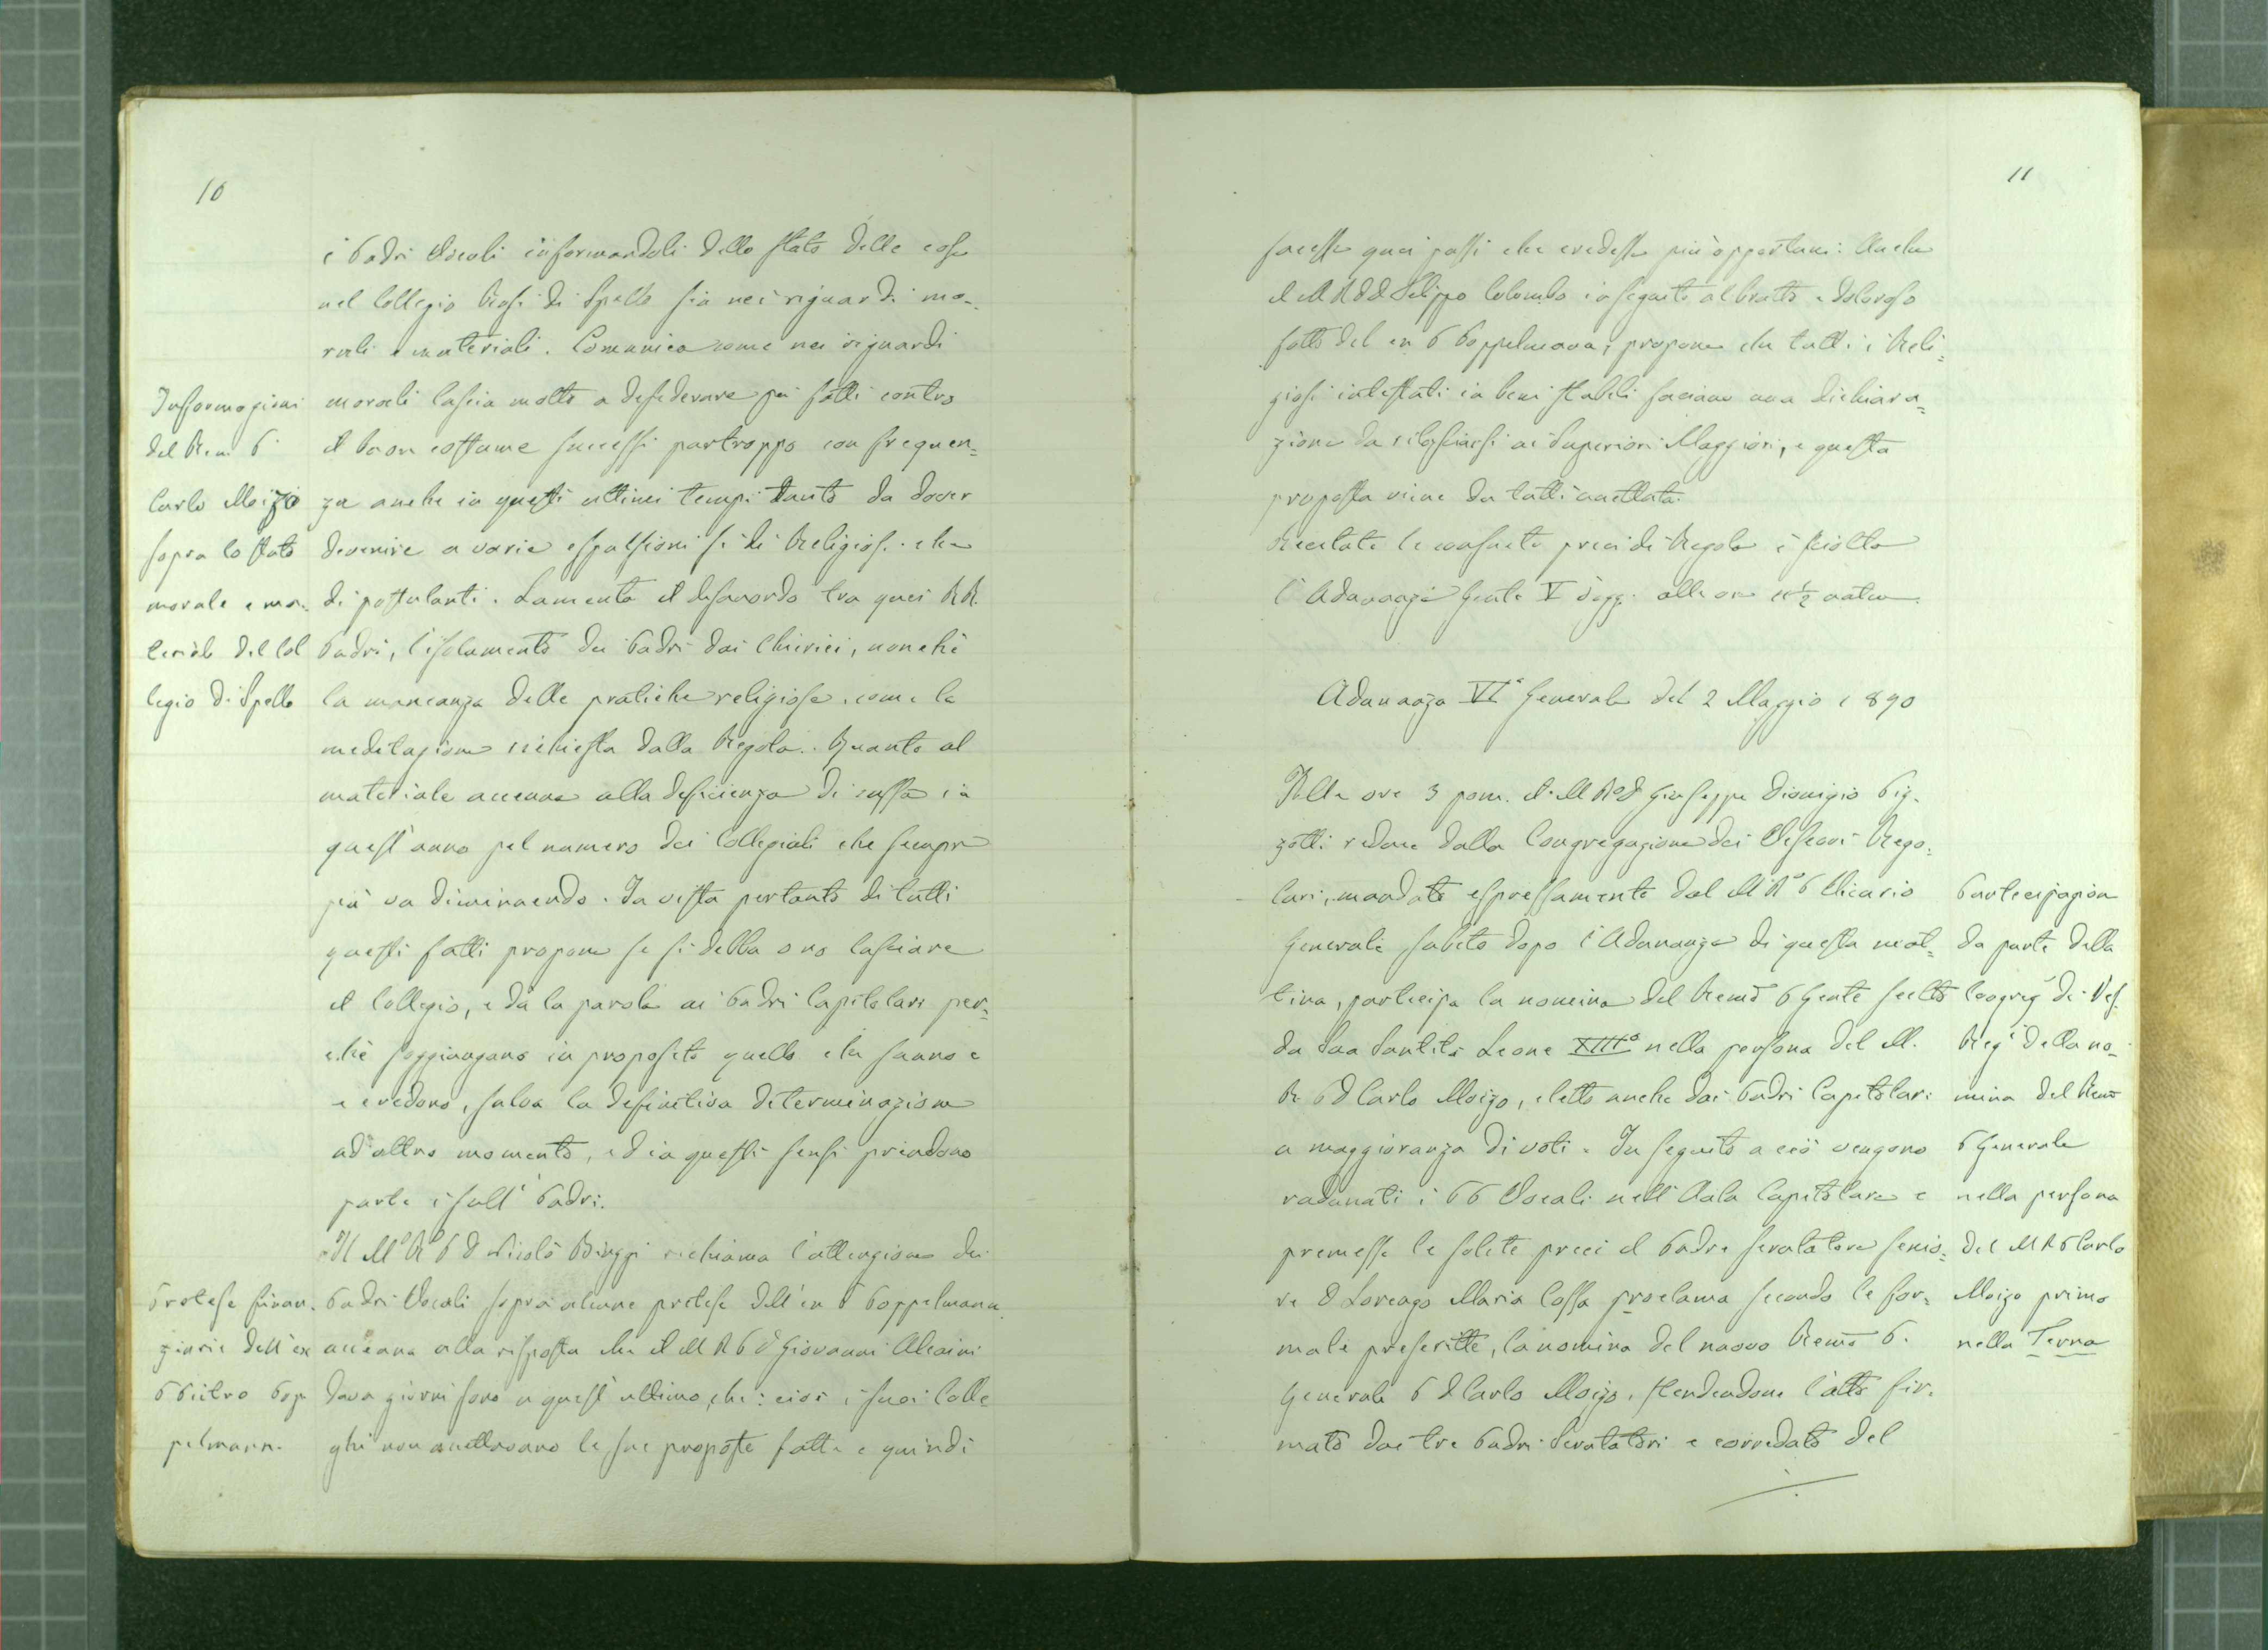 10
i Padri Vocali informandoli dello stato delle cose
nel Collegio Rosi di Spello sia nei riguardi mo-
rali e materiali. Comunica come nei riguardi
Informazioni
del Rem P.
Carlo Moizo
sopra lo stato
morale e ma-
teriale del Col
legio di Spello
morali lascia molto a desiderare pei fatti contro
il buon costume successi purtroppo con frequen=
za anche in questi ultimi tempi tanto da dover
devenire a varie espulsioni sì di Religiosi che
di postulanti. Lamenta il disaccordo tra quei RR.
Padri, l'isolamento dei Padri dai Chierici, nonchè
la mancanza delle pratiche religiose, come la
meditazione richiesta dalla Regola. Quanto al
materiale accenna alla deficienza di cassa in
quest'anno pel numero dei Collegiali che sempre
più va diminuendo. In vista pertanto di tutti
questi fatti propone se si debba o no lasciare
il Collegio, e dà la parola ai Padri Capitolari per=
chè soggiungano in proposito quello che sanno e
e credono, salva la definitiva determinazione
ad altro momento, ed in questi sensi prendono
parte i sull' Padri.
Il M.o R.o P D Nicolò Biaggi richiama l'attenzione dei
Pretese finan-
ziarie dell'ex
P Pietro Pop
pelmann.
Padri Vocali sopra alcune pretese dell'ex P Poppelmann
accenna alla risposta che il M R P D Giovanni Alcaini
dava giorni sono a quest'ultimo, che: cioè i suoi Colle
ghi non accettavano le sue proposte fatte e quindi
11
facesse quei passi che credesse più opportuni: Anche
il M R P D Filippo Colombo in seguito al brutto e doloroso
fatto del ex P Poppelmann, propone che tutti i Reli=
giosi intestati in beni stabili faciano una dichiara=
zione da rilasciarsi ai Superiori Maggiori, e questa
proposta viene da tutti accettata.
Recitate le consuete preci di Regola è sciolta
l'Adunanza Gente V d'oggi alle ore 11 1/2 antim.
Adunanza VIª Generale del 2 Maggio 1890
Alle ore 3 pom. il M R P D Giuseppe Dionigio Piz-
zotti reduce dalla Congregazione dei Vescovi Rego=
lari, mandato espressamente dal M R.o P Vicario
Generale subito dopo l'Adunanza di questa mat=
tina, partecipa la nomina del Remo P Gente scelto
da Sua Santità Leone XIIIº nella persona del M.
R P D Carlo Moizo, eletto anche dai Padri Capitolari
a maggioranza di voti. In seguito a ciò vengono
radunati i PP Vocali nell'Aula Capitolare e
premesse le solite preci il Padre scrutatore senio=
re D Lorenzo Maria Cossa proclama secondo le for=
male prescritte, la nomina del nuovo Remo P.
Generale P D Carlo Moizo, stendendone l'atto fir-
mato dai tre Padri Scrutatori e corredato del
Partecipazion
da parte della
Congreg.e di Vesc.
Reg.i della no-
mina del Remo
P Generale
nella persona
del M R P Carlo
Moizo primo
nella Terna